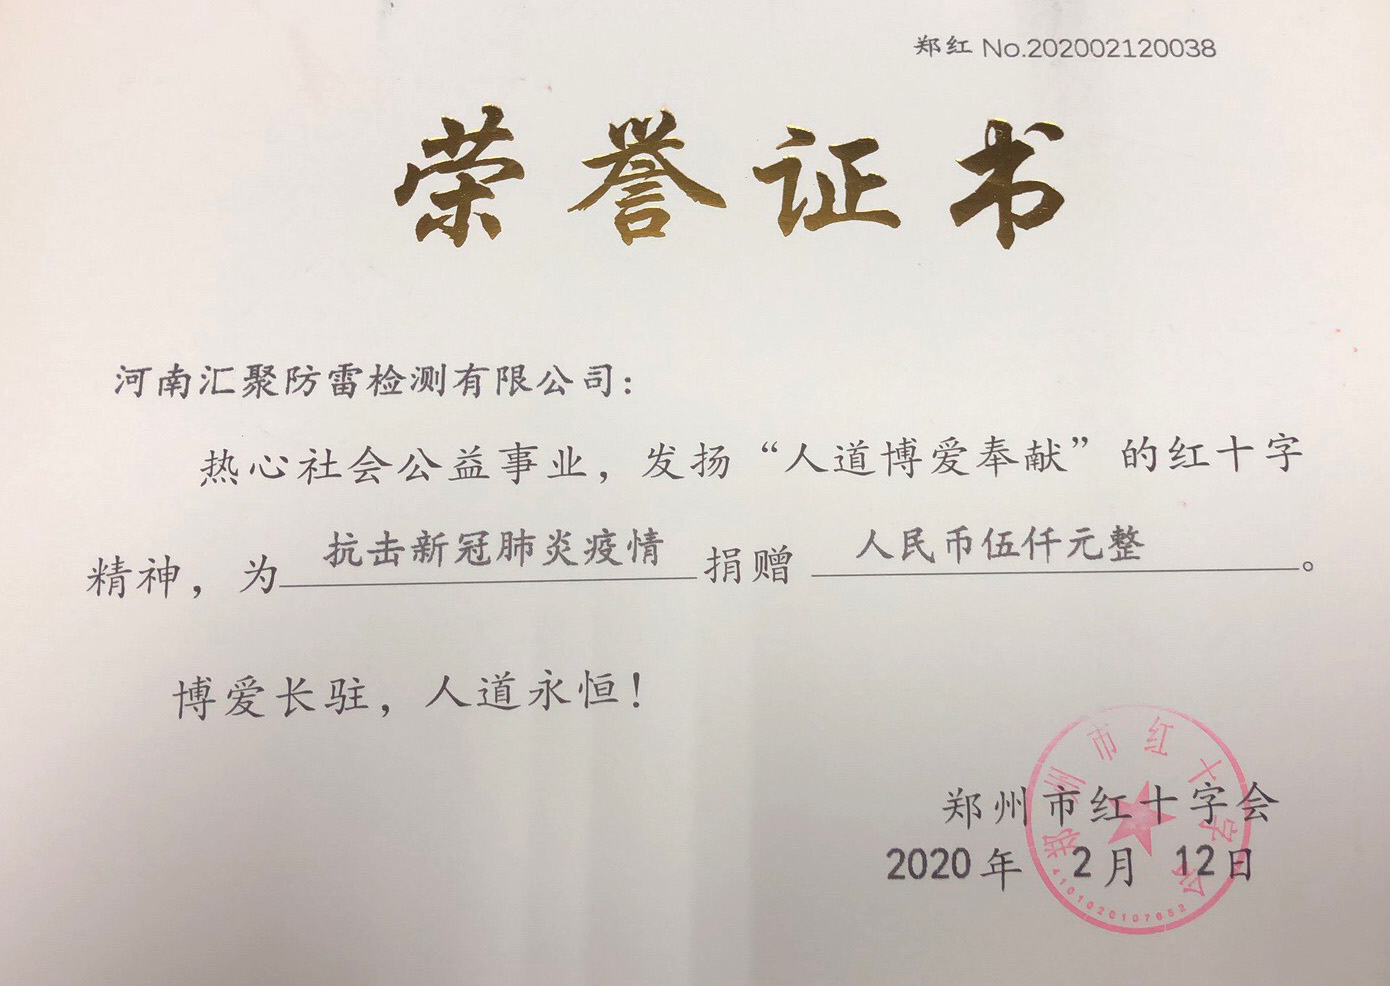 郑红 No.202002120038
荣誉证书
河南汇聚防雷检测有限公司：
热心社会公益事业，发扬“人道博爱奉献”的红十字
精神，为抗击新冠肺炎疫情捐赠人民币伍仟元整。
博爱长驻，人道永恒！
郑州市红十字会
2020年 2月 12日
郑州市红十字会
4101020107652